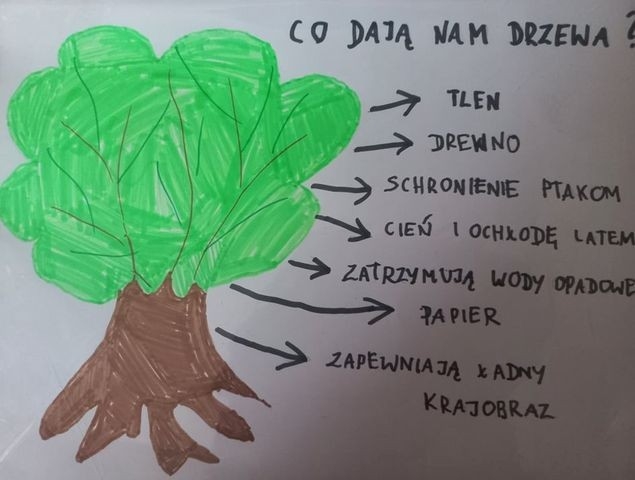 CO DAJĄ NAM DRZEWA ?
TLEN
DREWNO
SCHRONIENIE PTAKOM
CIEŃ I OCHŁODĘ LATEM
ZATRZYMUJĄ WODY OPADOWE
PAPIER
ZAPEWNIAJĄ ŁADNY
KRAJOBRAZ